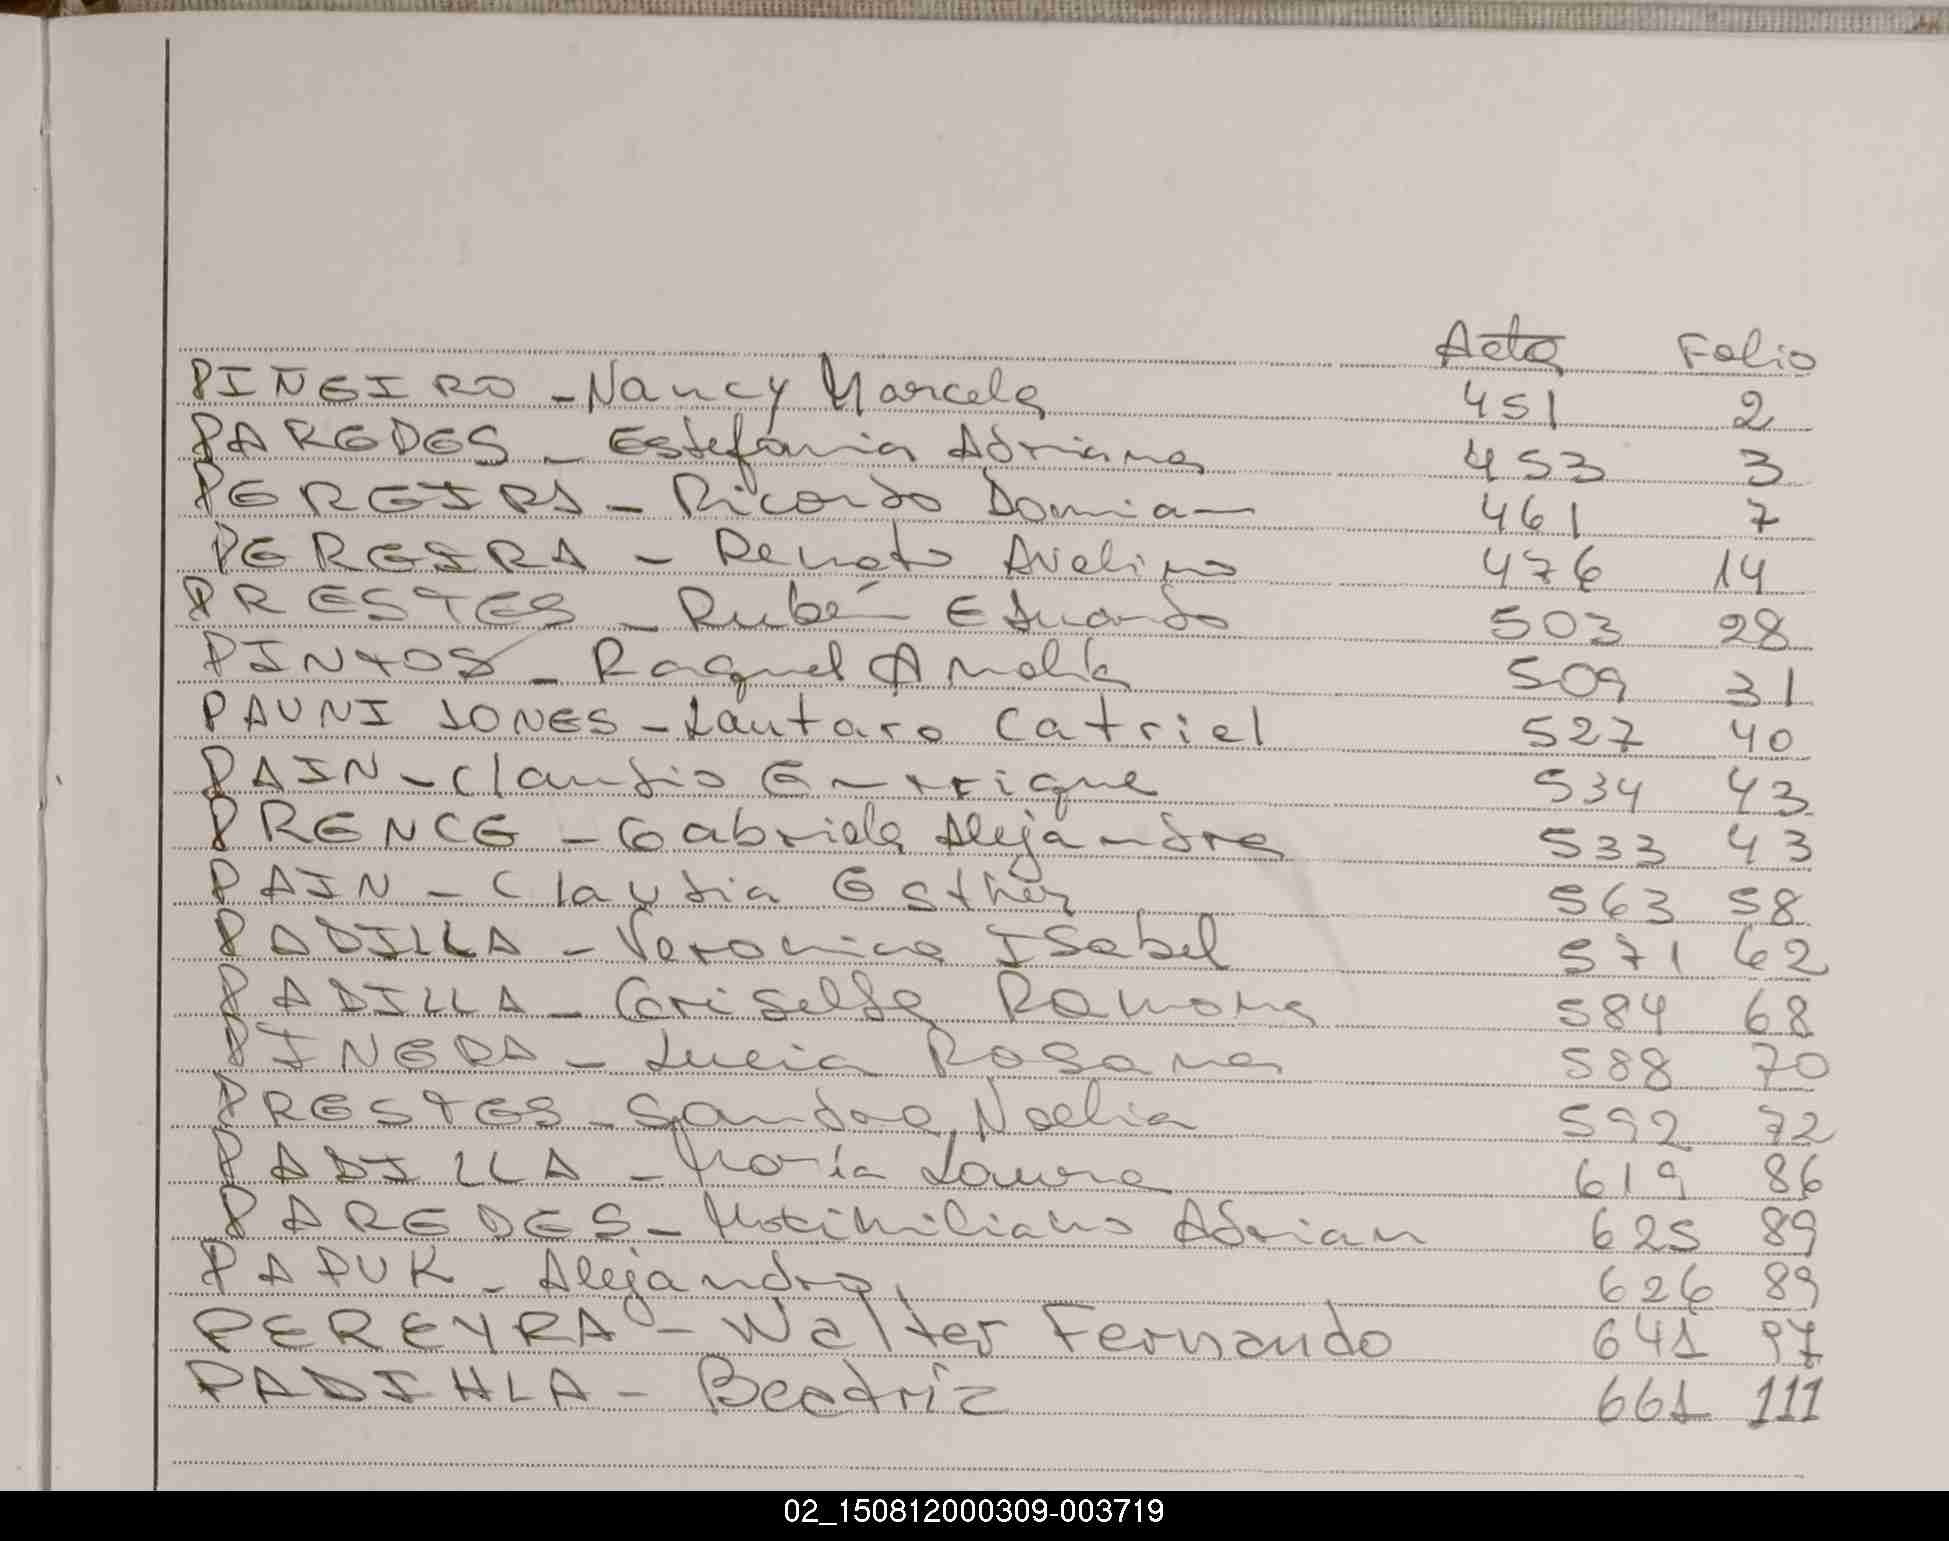 Acta Folio
PIÑEIRO - Nancy Marcela 451 2
PAREDES - Estefania Adriana 453 3
PEREIRA - Ricardo Damian 461 7
PEREIRA - Renato Avelino 476 14
PRESTES - Rubén Eduardo 503 28
PINTOS - Raquel Amalia 509 31
PAUNI JONES - Lautaro Catriel 527 40
PAIN - Claudio Enrrique 534 43
PRENCE - Gabriela Alejandra 533 43
PAIN - Claudia Esther 563 58
PADILLA - Veronica Isabel 571 62
PADILLA - Griselda Ramona 584 68
PINEDA - Lucia Rosana 588 70
PRESTES - Sandra Noelia 592 72
PADILLA - María Laura 619 86
PAREDES - Maximiliano Adrian 625 89
PAPUK - Alejandro 626 89
PEREYRA - Walter Fernando 641 97
PADILHLA - Beatriz 661 111
02_150812000309-003719